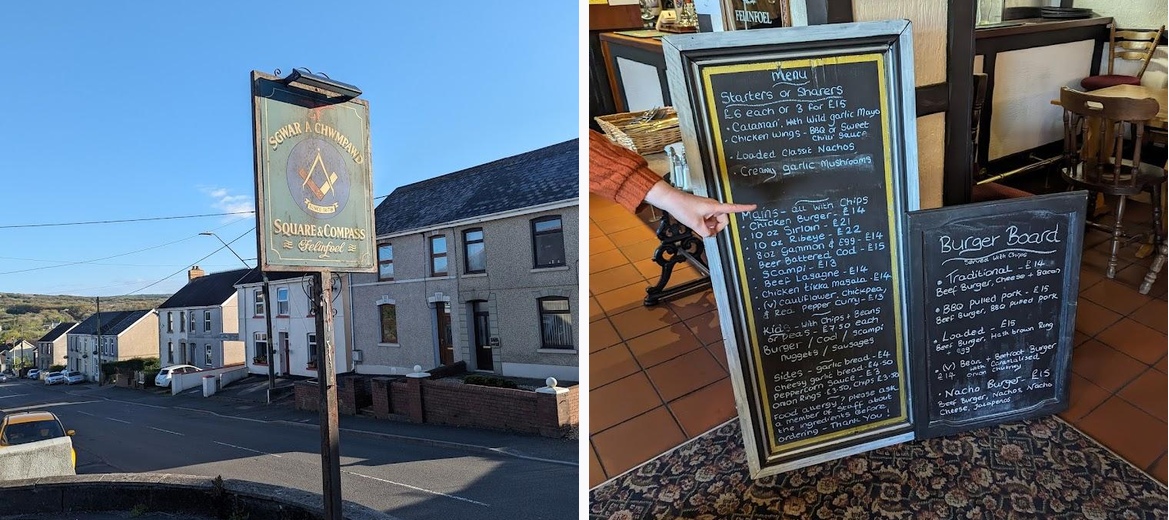 SGWAR A CHWMPAWD
SQUARE & COMPASS
Felinfoel
FELINFOEL
Menu
Starters or Sharers
£6 each or 3 for £15
· Calamari, with Wild garlic Mayo
· Chicken Wings - BBQ or Sweet
Chilli Sauce
· Loaded Classic Nachos
· Creamy garlic Mushrooms
Mains - all with Chips
· Chicken Burger - £14
· 10 oz Sirloin - £21
· 10 oz Ribeye - £22
8oz Gammon & Egg - £14
Beer Battered Cod - £15
Scampi - £13
Beef Lasagne - £14
· Chicken tikka masala - £14
(v) Cauliflower, Chickpea,
& Red Pepper Curry - £13
Kids - with Chips + Beans
or Peas - £7.50 each
Burger / Cod / Scampi
Nuggets / Sausages
Sides - garlic bread - £4
Cheesy garlic bread - £4.50
Peppercorn Sauce - £3
Onion Rings £3.50, Chips £3.50
Food allergy? please ask
a member of Staff about
the ingredients before
ordering - Thank You!
Burger Board
Served with Chips
· Traditional - £14
Beef Burger, Cheese + Bacon
· BBQ Pulled Pork - £15
Beef Burger, BBQ pulled pork
· Loaded - £15
Beef Burger, Hash brown Ring
+ egg
· (v) Bean + Beetroot Burger
£14 - with Caramelised
onion Chutney
· Nacho Burger - £15
Beef Burger, Nachos, Nacho
Cheese, Jalapenos